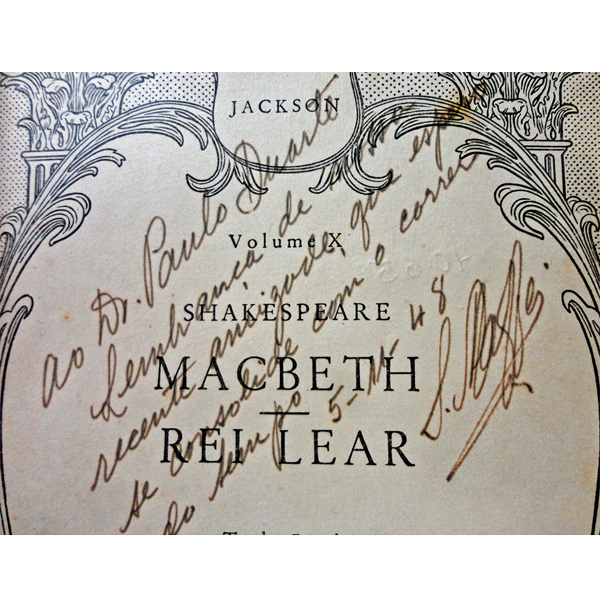 JACKSON
Volume X
SHAKESPEARE
MACBETH
REI LEAR
ao Dr. Paulo Duarte
Lembrança de nossa
recente amizade, que espero
se consolide com o correr
do tempo
5-11-48